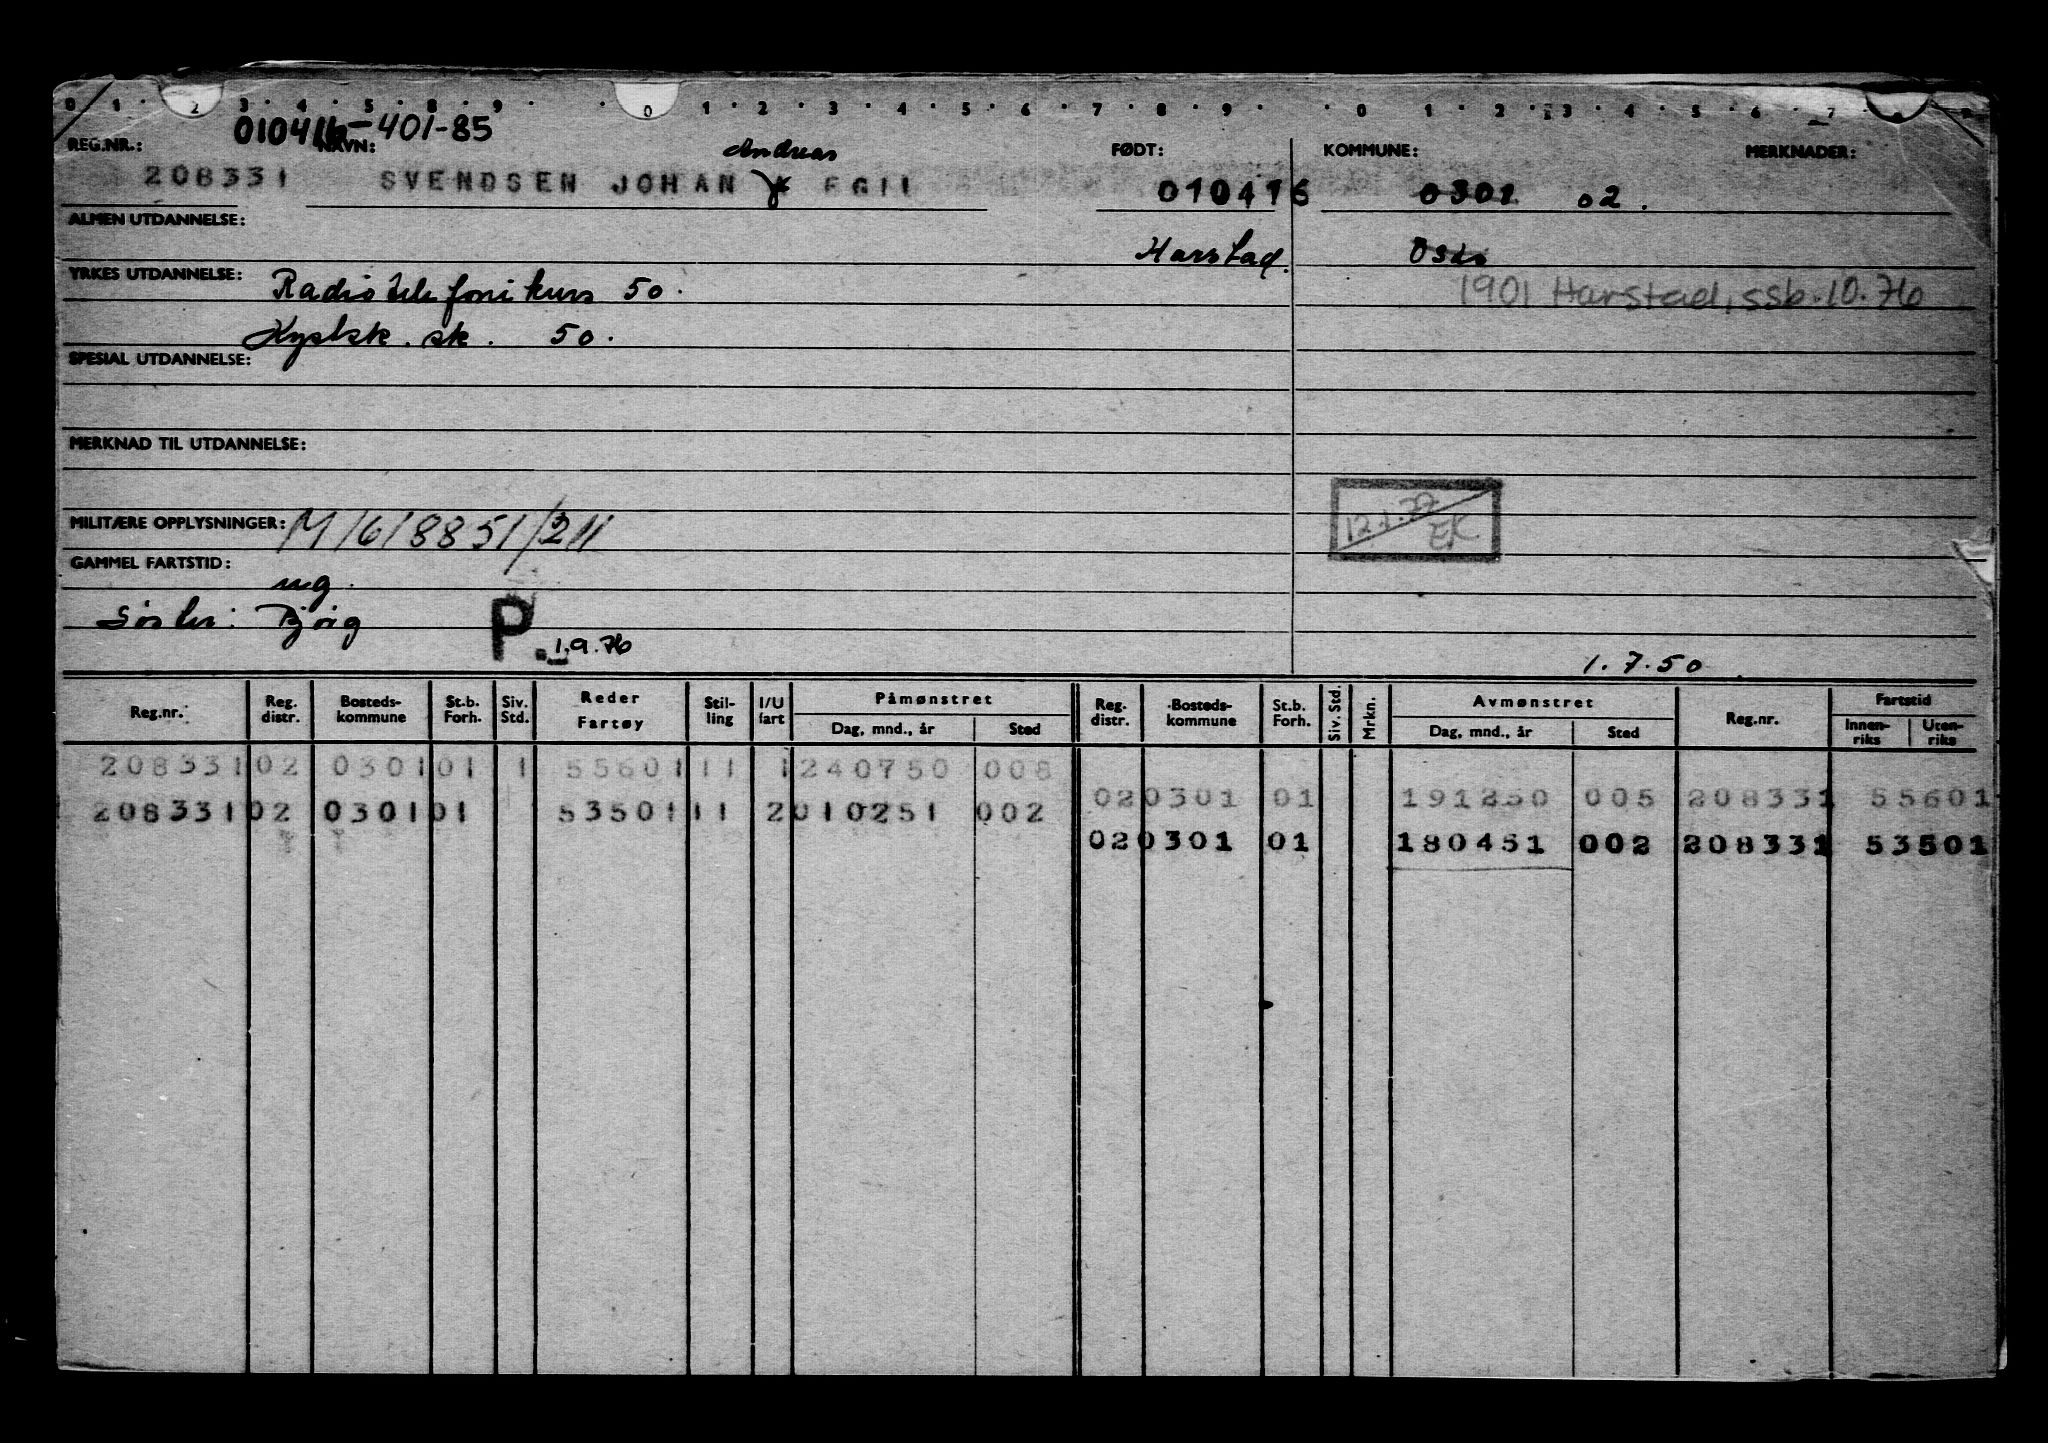 0 1 · 2 3 · 4 · 5 · 8 · 9 · · 0 1 · 2 · 3 · 4 · 5 · 6 · 7 · 8 · 9 · · 0 · 1 · 2 · 3 · 4 · 5 · 6 · 7
010416-401-85
REG.NR.: NAVN: Andreas FØDT: KOMMUNE: MERKNADER:
208331 SVENDSEN JOHAN EGIL 010416 0301 02.
ALMEN UTDANNELSE:
Harstad. Oslo
YRKES UTDANNELSE: Radiotelefonikurs 50. 1901 Harstad, ssb. 10.76
Kystsk. sk. 50.
SPESIAL UTDANNELSE:
MERKNAD TIL UTDANNELSE:
MILITÆRE OPPLYSNINGER: M/6/8851/211 12.1.77 EK
GAMMEL FARTSTID:
ug.
Søster: Bjørg P 1.9.76
1.7.50
Reg.nr. Reg. distr. Bosteds-kommune St.b. Forh. Siv. Std. Reder Fartøy Stil-ling I/U fart Påmønstret Dag, mnd., år Sted Reg. distr. Bosteds-kommune St.b. Forh. Siv. Std. Mrkn. Avmønstret Dag, mnd., år Sted Reg.nr. Fartstid Innen-riks Uten-riks
208331 02 0301 01 1 55601 11 1 240750 008
02 0301 01 191250 005 208331 55601
208331 02 0301 01 53501 11 2 010251 002
02 0301 01 180451 002 208331 53501